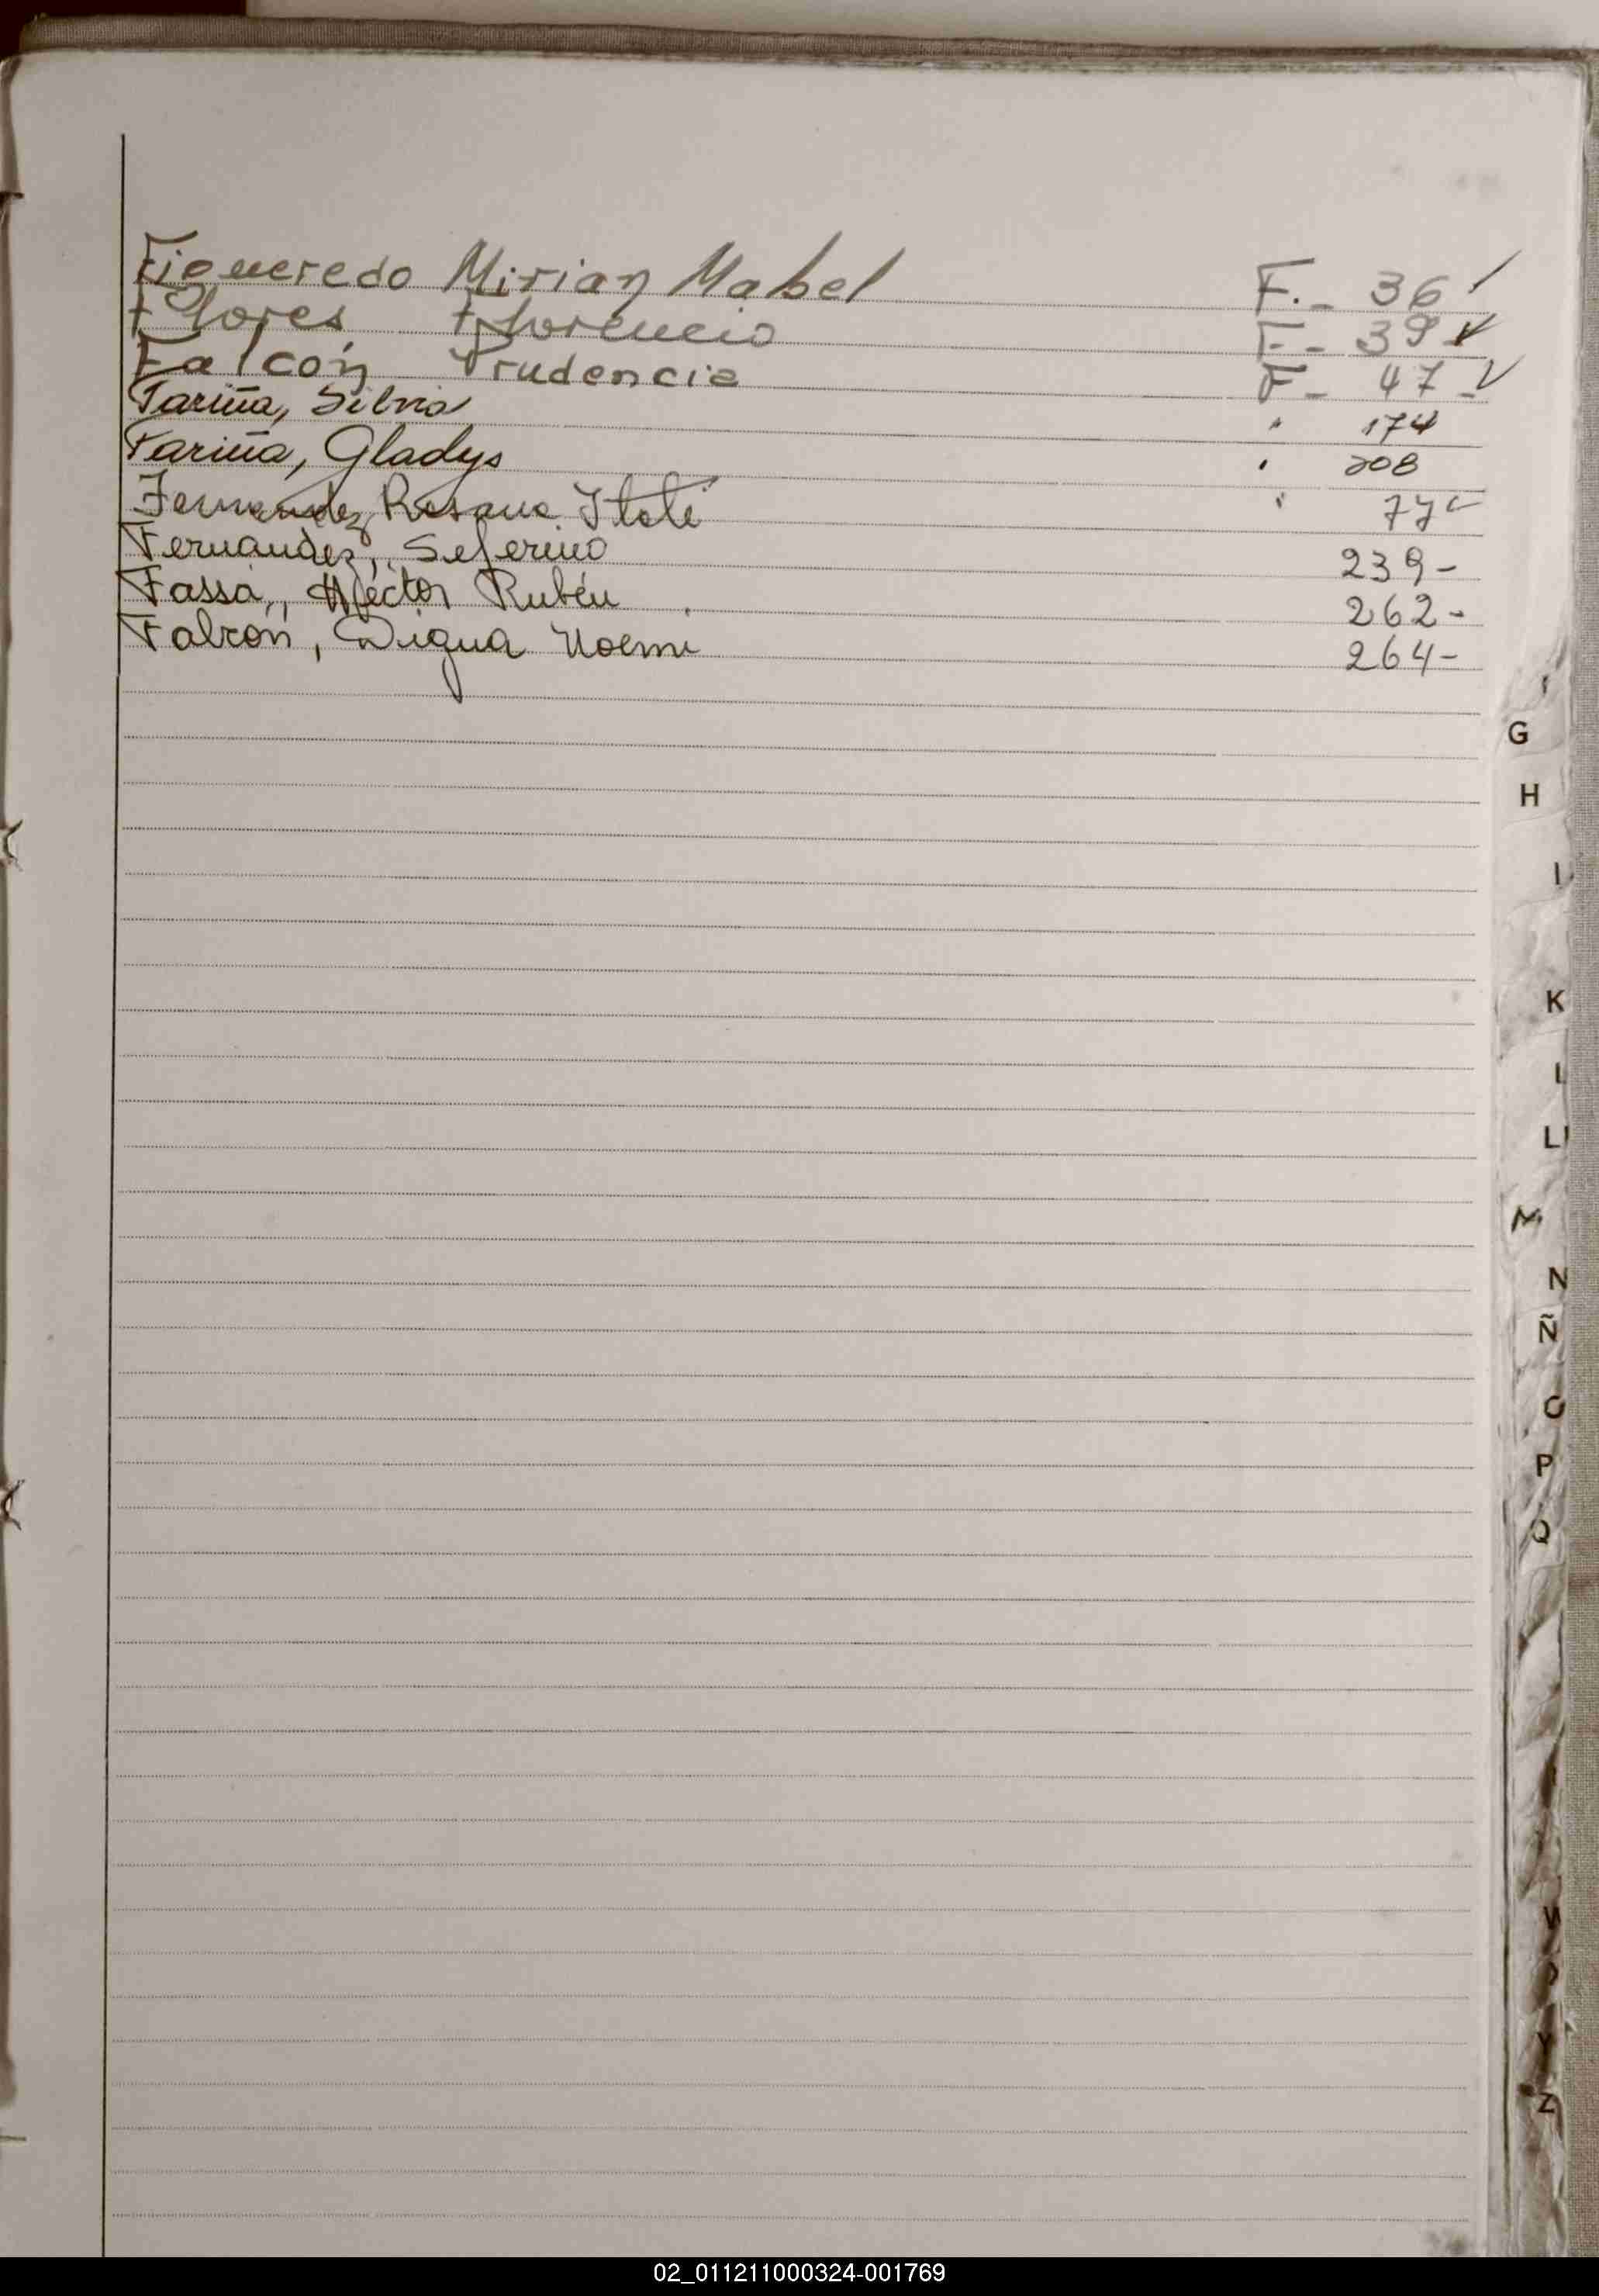 Figueredo Mirian Mabel F. - 36 ✓
Flores Florencio F - 39 ✓
Falcón Prudencia F - 47 - ✓
Fariña, Silvia " 174
Fariña, Gladys " 208
Fernandez, Rosana Itatí " 77 ✓
Fernandez, Seferino 239-
Fassa, Héctor Rubén 262-
Falcón, Digna Noemi 264-
G
H
I
K
L
Ll
M
N
Ñ
O
P
Q
W
Y
Z
02_011211000324-001769